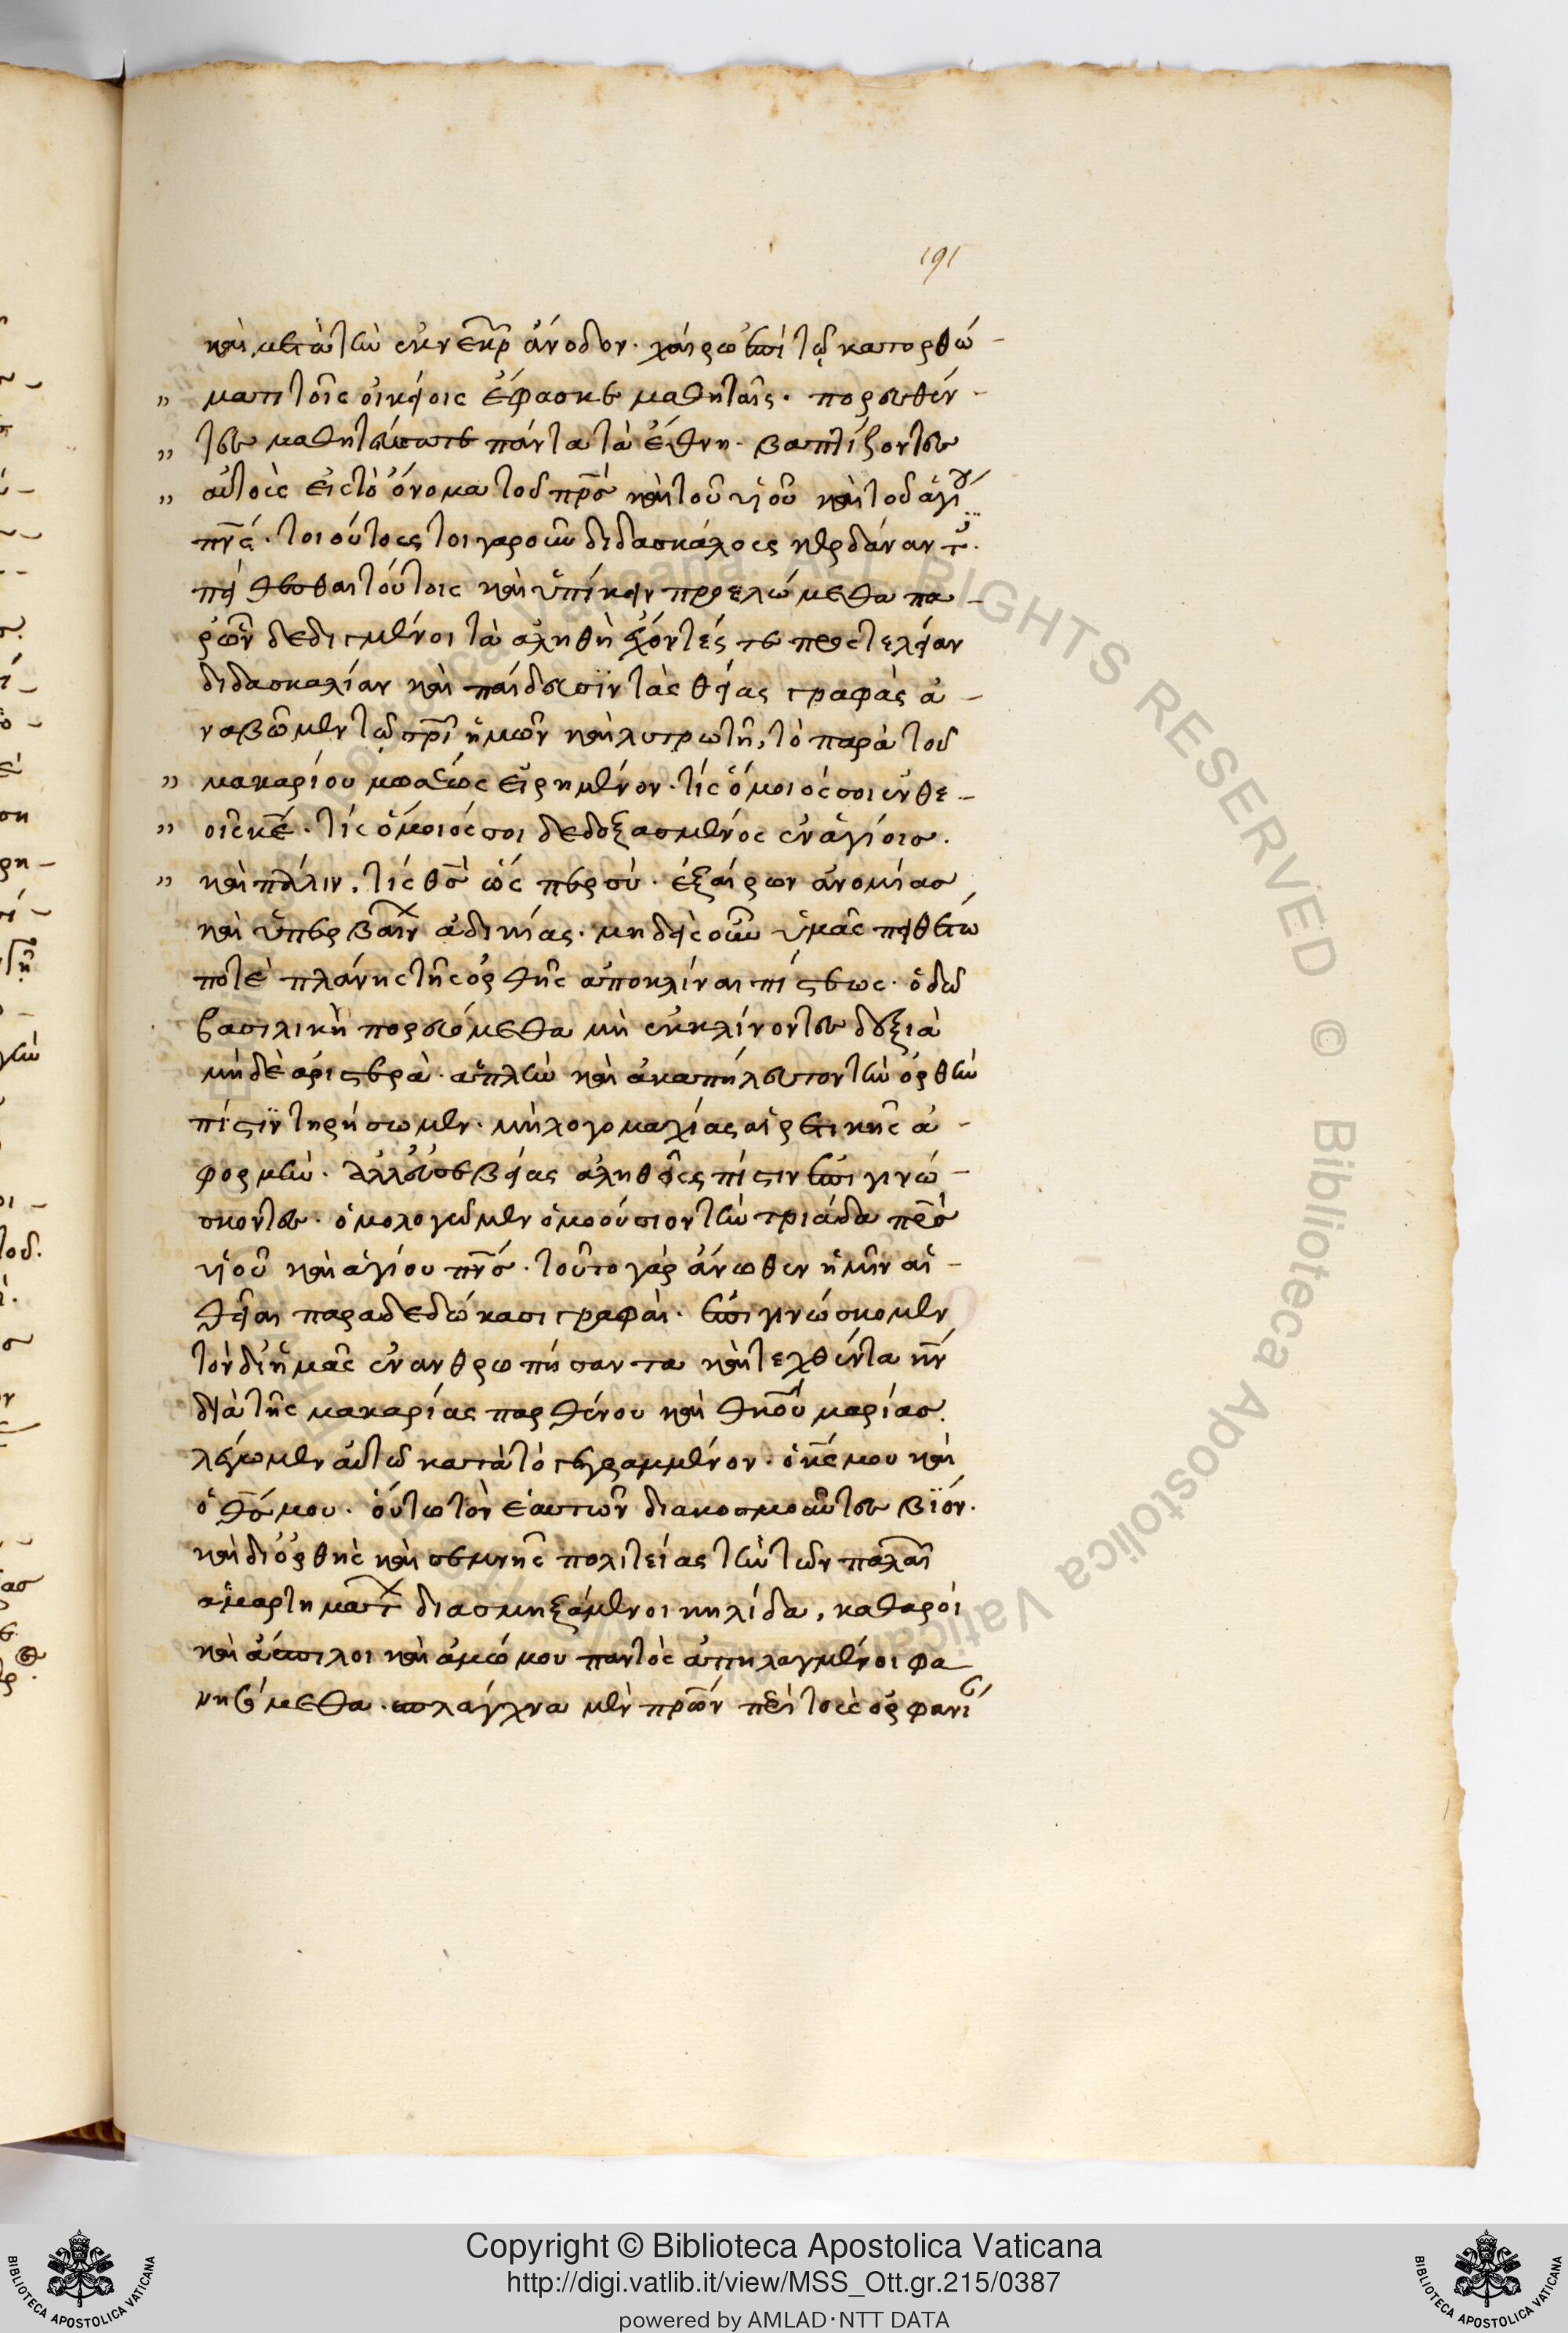 191
καὶ μετὰ τὴν ἐκ νεκρ ἄνοδον. χαίρων ἐπὶ τῷ κατορθώ-
„ ματι τοῖς οἰκείοις ἔφασκε μαθηταῖς. πορευθέν-
„ τες μαθητεύσατε πάντα τὰ ἔθνη. βαπτίζοντες
„ αὐτοὺς εἰς τὸ ὄνομα τοῦ πρσ καὶ τοῦ υἱοῦ καὶ τοῦ ἁγίου
πνς. τοιούτους τοιγαροῦν διδασκάλους κερδάναντ.
πείθεσθαι τούτοις καὶ ὑπείκειν προελώμεθα πα-
ρ' ὧν δεδιγμένοι τὰ ἀληθῆ
διδασκαλίαν καὶ παίδευσιν τὰς θείας γραφὰς ἀ-
ναβοῶμεν τῷ σρι ἡμῶν καὶ λυτρωτῆ, τὸ παρὰ τοῦ
„ μακαρίου μωσέως εἰρημένον. τίς ὅμοιός σοι ἐν θε-
„ οῖς κε. τίς ὅμοιός σοι δεδοξασμένος ἐν ἁγίοις.
„ καὶ πάλιν. τίς θσ ὥσπερ σύ. ἐξαίρων ἀνομίας
καὶ ὑπερβαίν ἀδικίας. μηδεὶς οὖν ὑμᾶς πειθέτω
ποτὲ πλάνης τῆς ὀρθῆς ἀποκλίναι πίστεως. ὁδῶ
βασιλικὴ πορευόμεθα μὴ ἐκκλίνοντες δεξιὰ
μηδὲ ἀριστερὰ. ἁπλὴν καὶ ἀκαπήλευτον τὴν ὀρθὴν
πίστιν τηρήσωμεν. μὴ λογομαχίας αἱρετικῆς ἀ-
φορμὴν. ἀλλ' εὐσεβείας ἀληθοῦς πίστιν ἐπιγινώ-
σκοντες. ὁμολογῶμεν ὁμοούσιον τὴν τριάδα πρσ
υἱοῦ καὶ ἁγίου πνσ. τοῦτο γὰρ ἄνωθεν ἡμῖν αἱ
θεῖαι παραδεδώκασι γραφαὶ. ἐπιγινώσκομεν
τὸν δι' ἡμᾶς ἐνανθρωπήσαντα καὶ τεχθέντα νν
διὰ τῆς μακαρίας παρθένου καὶ θκου μαρίας.
λέγωμεν αὐτῶ κατὰ τὸ γεγραμμένον. ὁ κς μου καὶ
ὁ θσ μου. οὕτω τὸν ἑαυτῶν διακοσμοῦντες βίον.
καὶ δι' ὀρθῆς καὶ σεμνῆς πολιτείας τὴν τῶν παλαι
ἁμαρτημάτ διασμηξάμενοι κηλίδα, καθαροί
καὶ ἄσπιλοι καὶ ἀμώμου παντὸς ἀπηλαγμένοι φα
νησόμεθα. σπλάγχνα μὲν πρῶν περὶ τοὺς ὀρφανοὺ
Copyright © Biblioteca Apostolica Vaticana
http://digi.vatlib.it/view/MSS_Ott.gr.215/0387
powered by AMLAD·NTT DATA